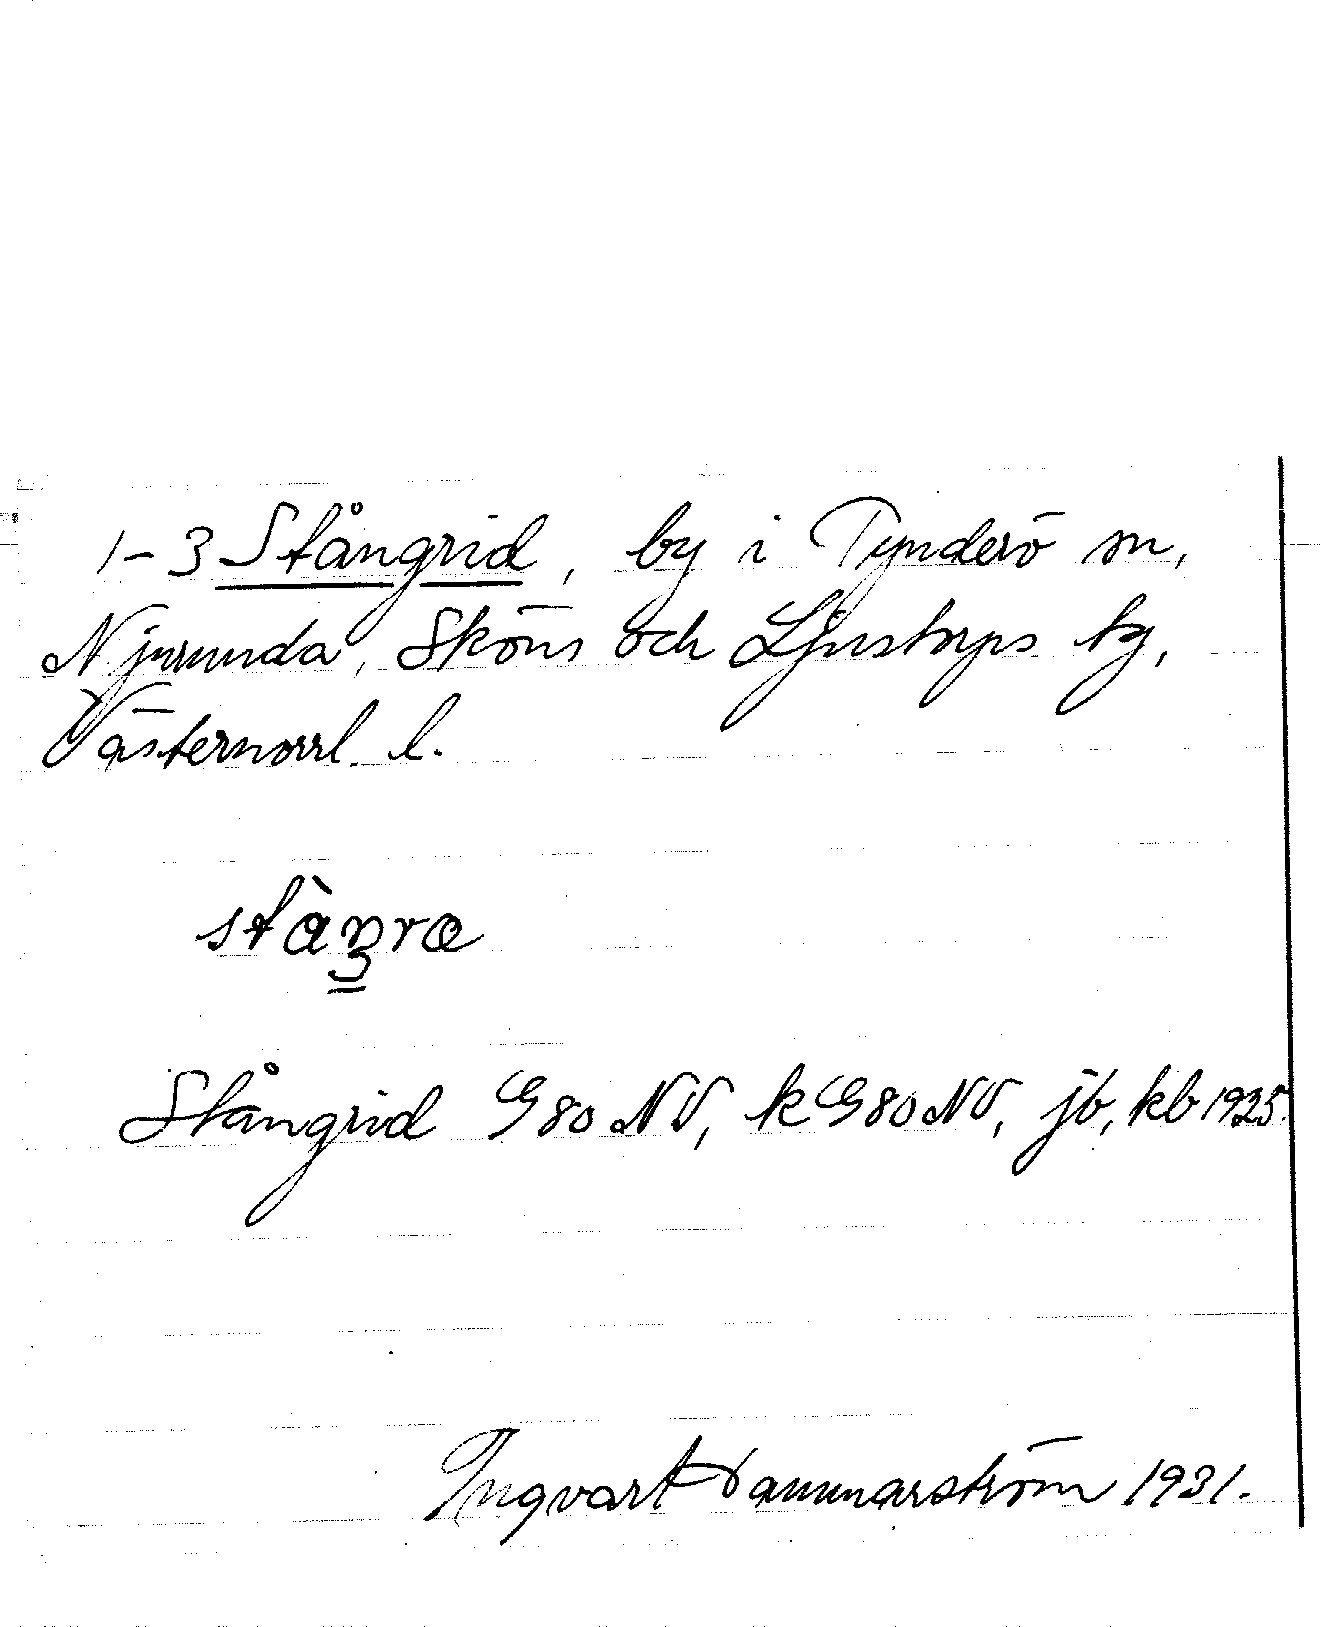 1-3 Stångrid, by i Tynderö sn,
Njurunda, Sköns och Ljustorps tg,
Västernorrl. l.
Stångrid G80 NV, k G80 NV, jb, kb 1925.
Ingvart Dammarström 1931.